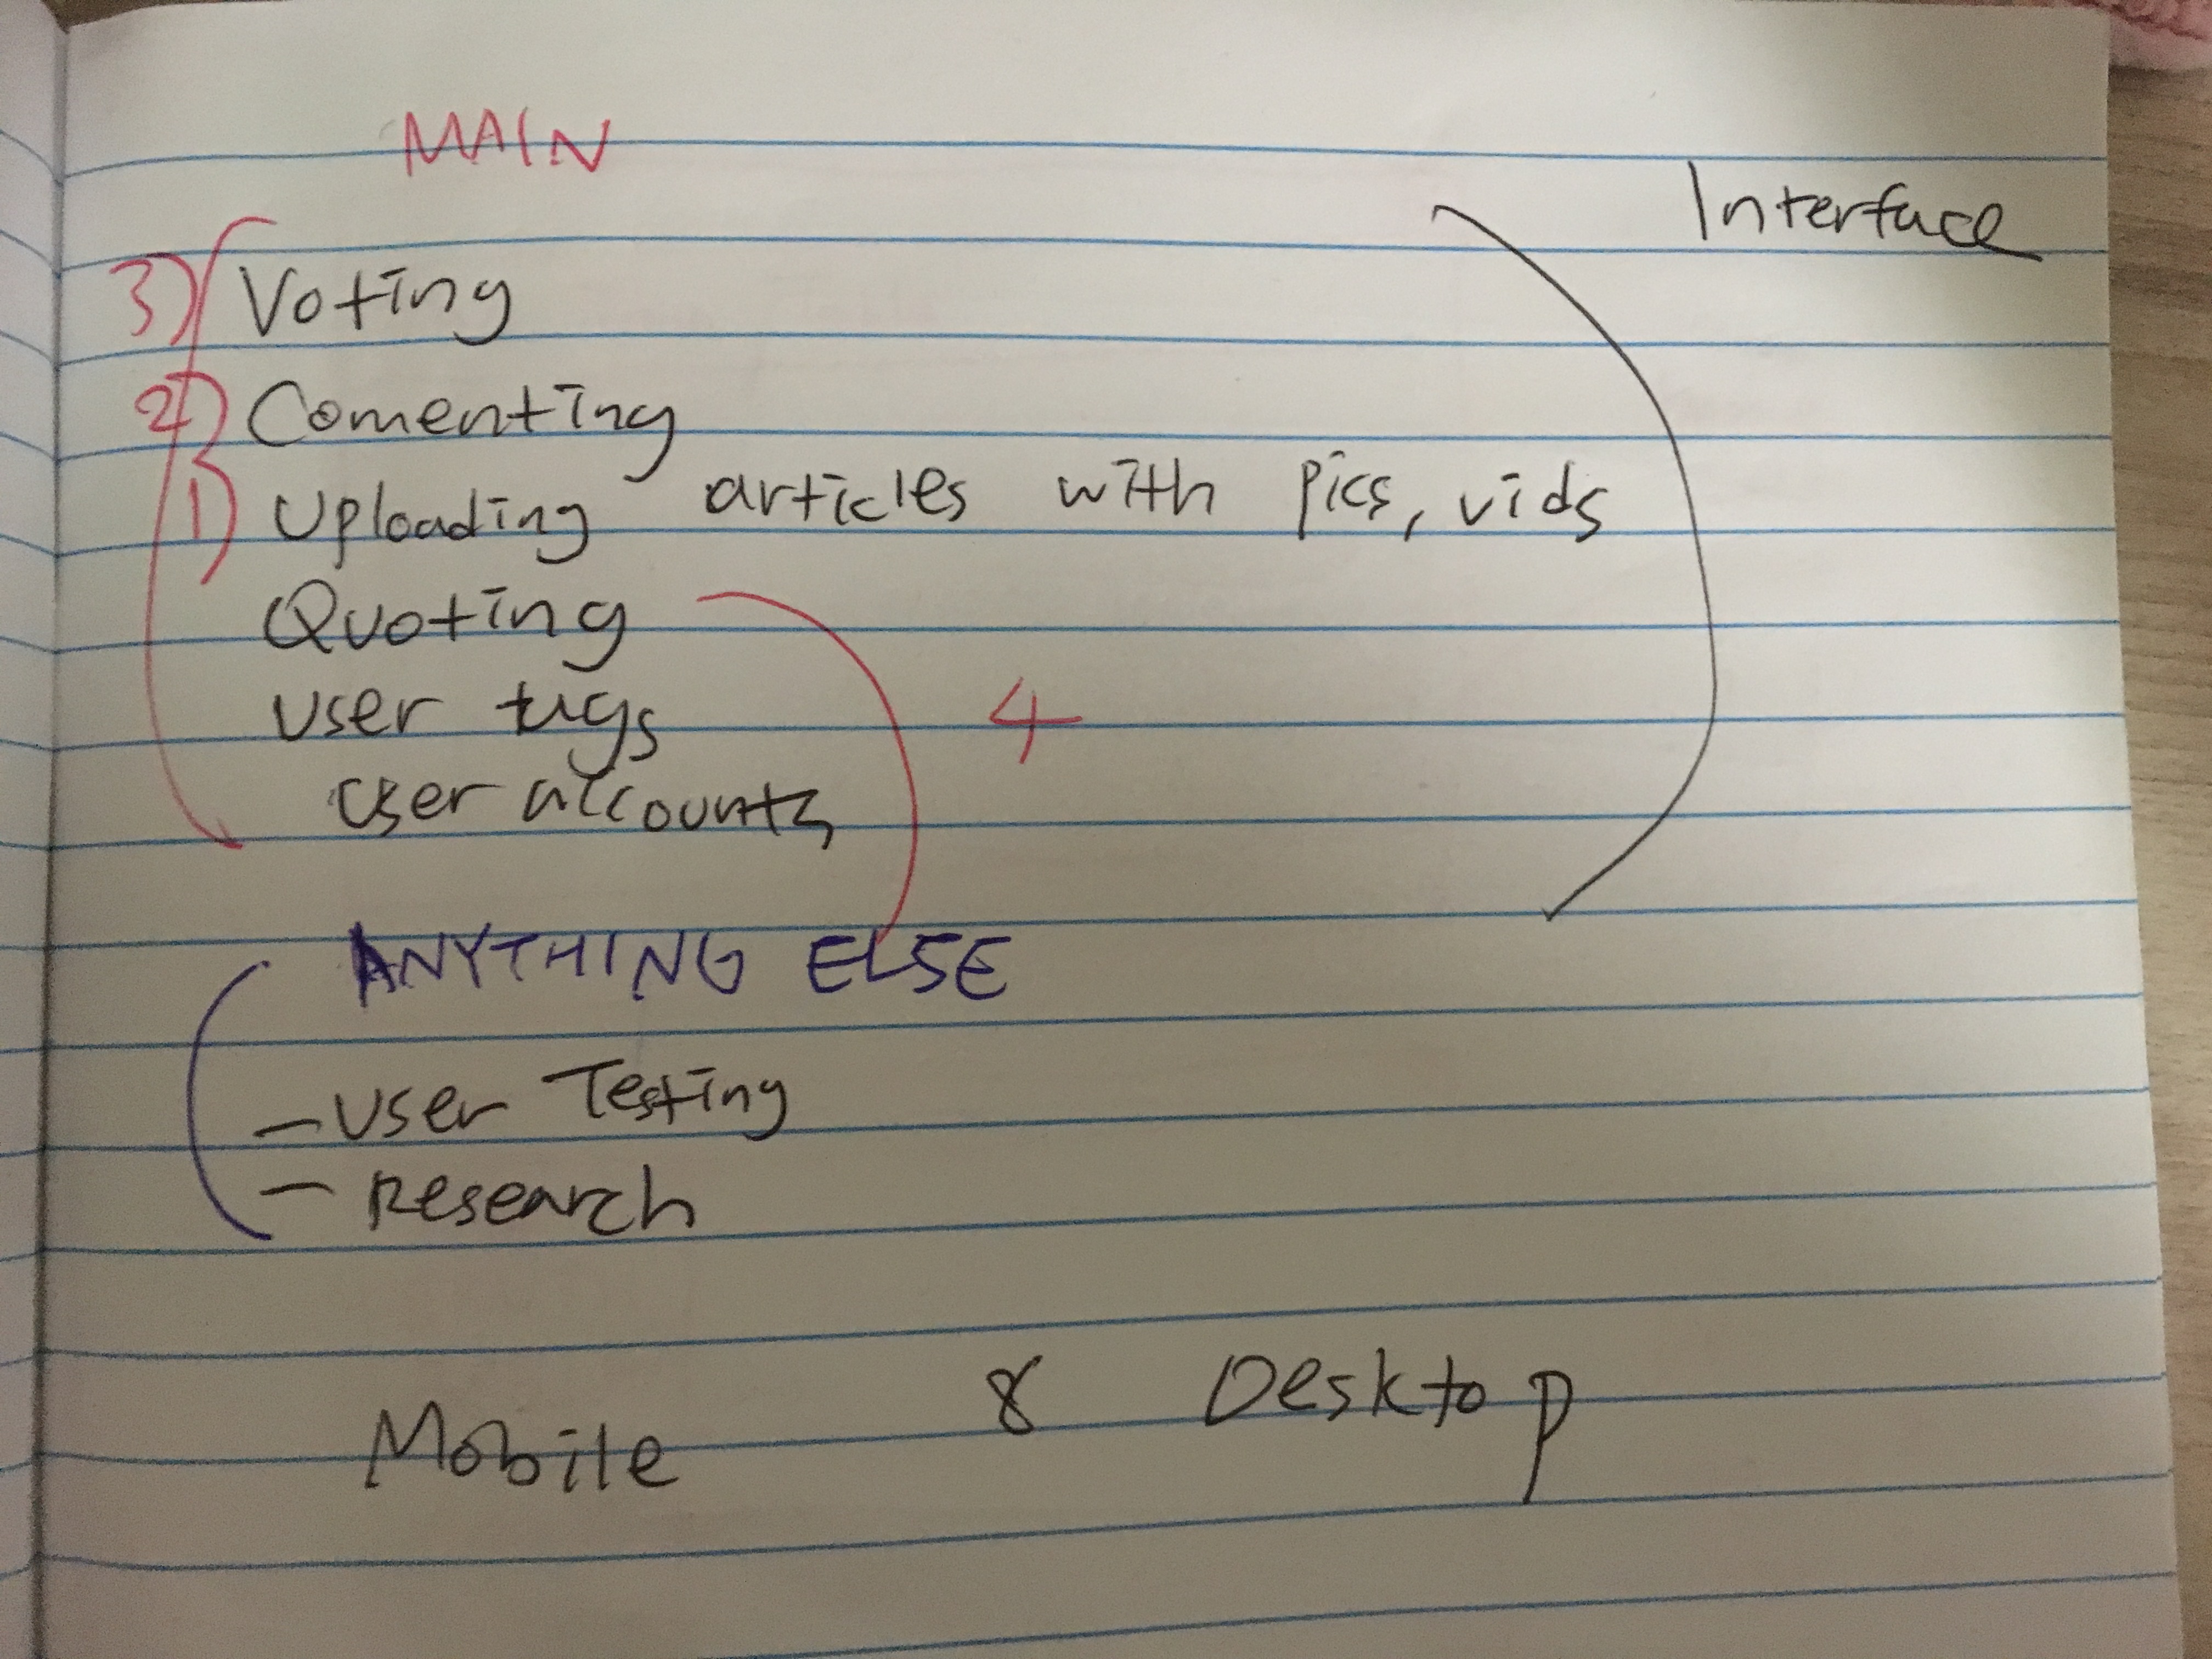 MAIN
Interface
3) Voting
2) Comenting
1) Uploading articles with pics, vids
Quoting
User tags
4
User accounts
ANYTHING ELSE
- User Testing
- Research
Mobile & Desktop